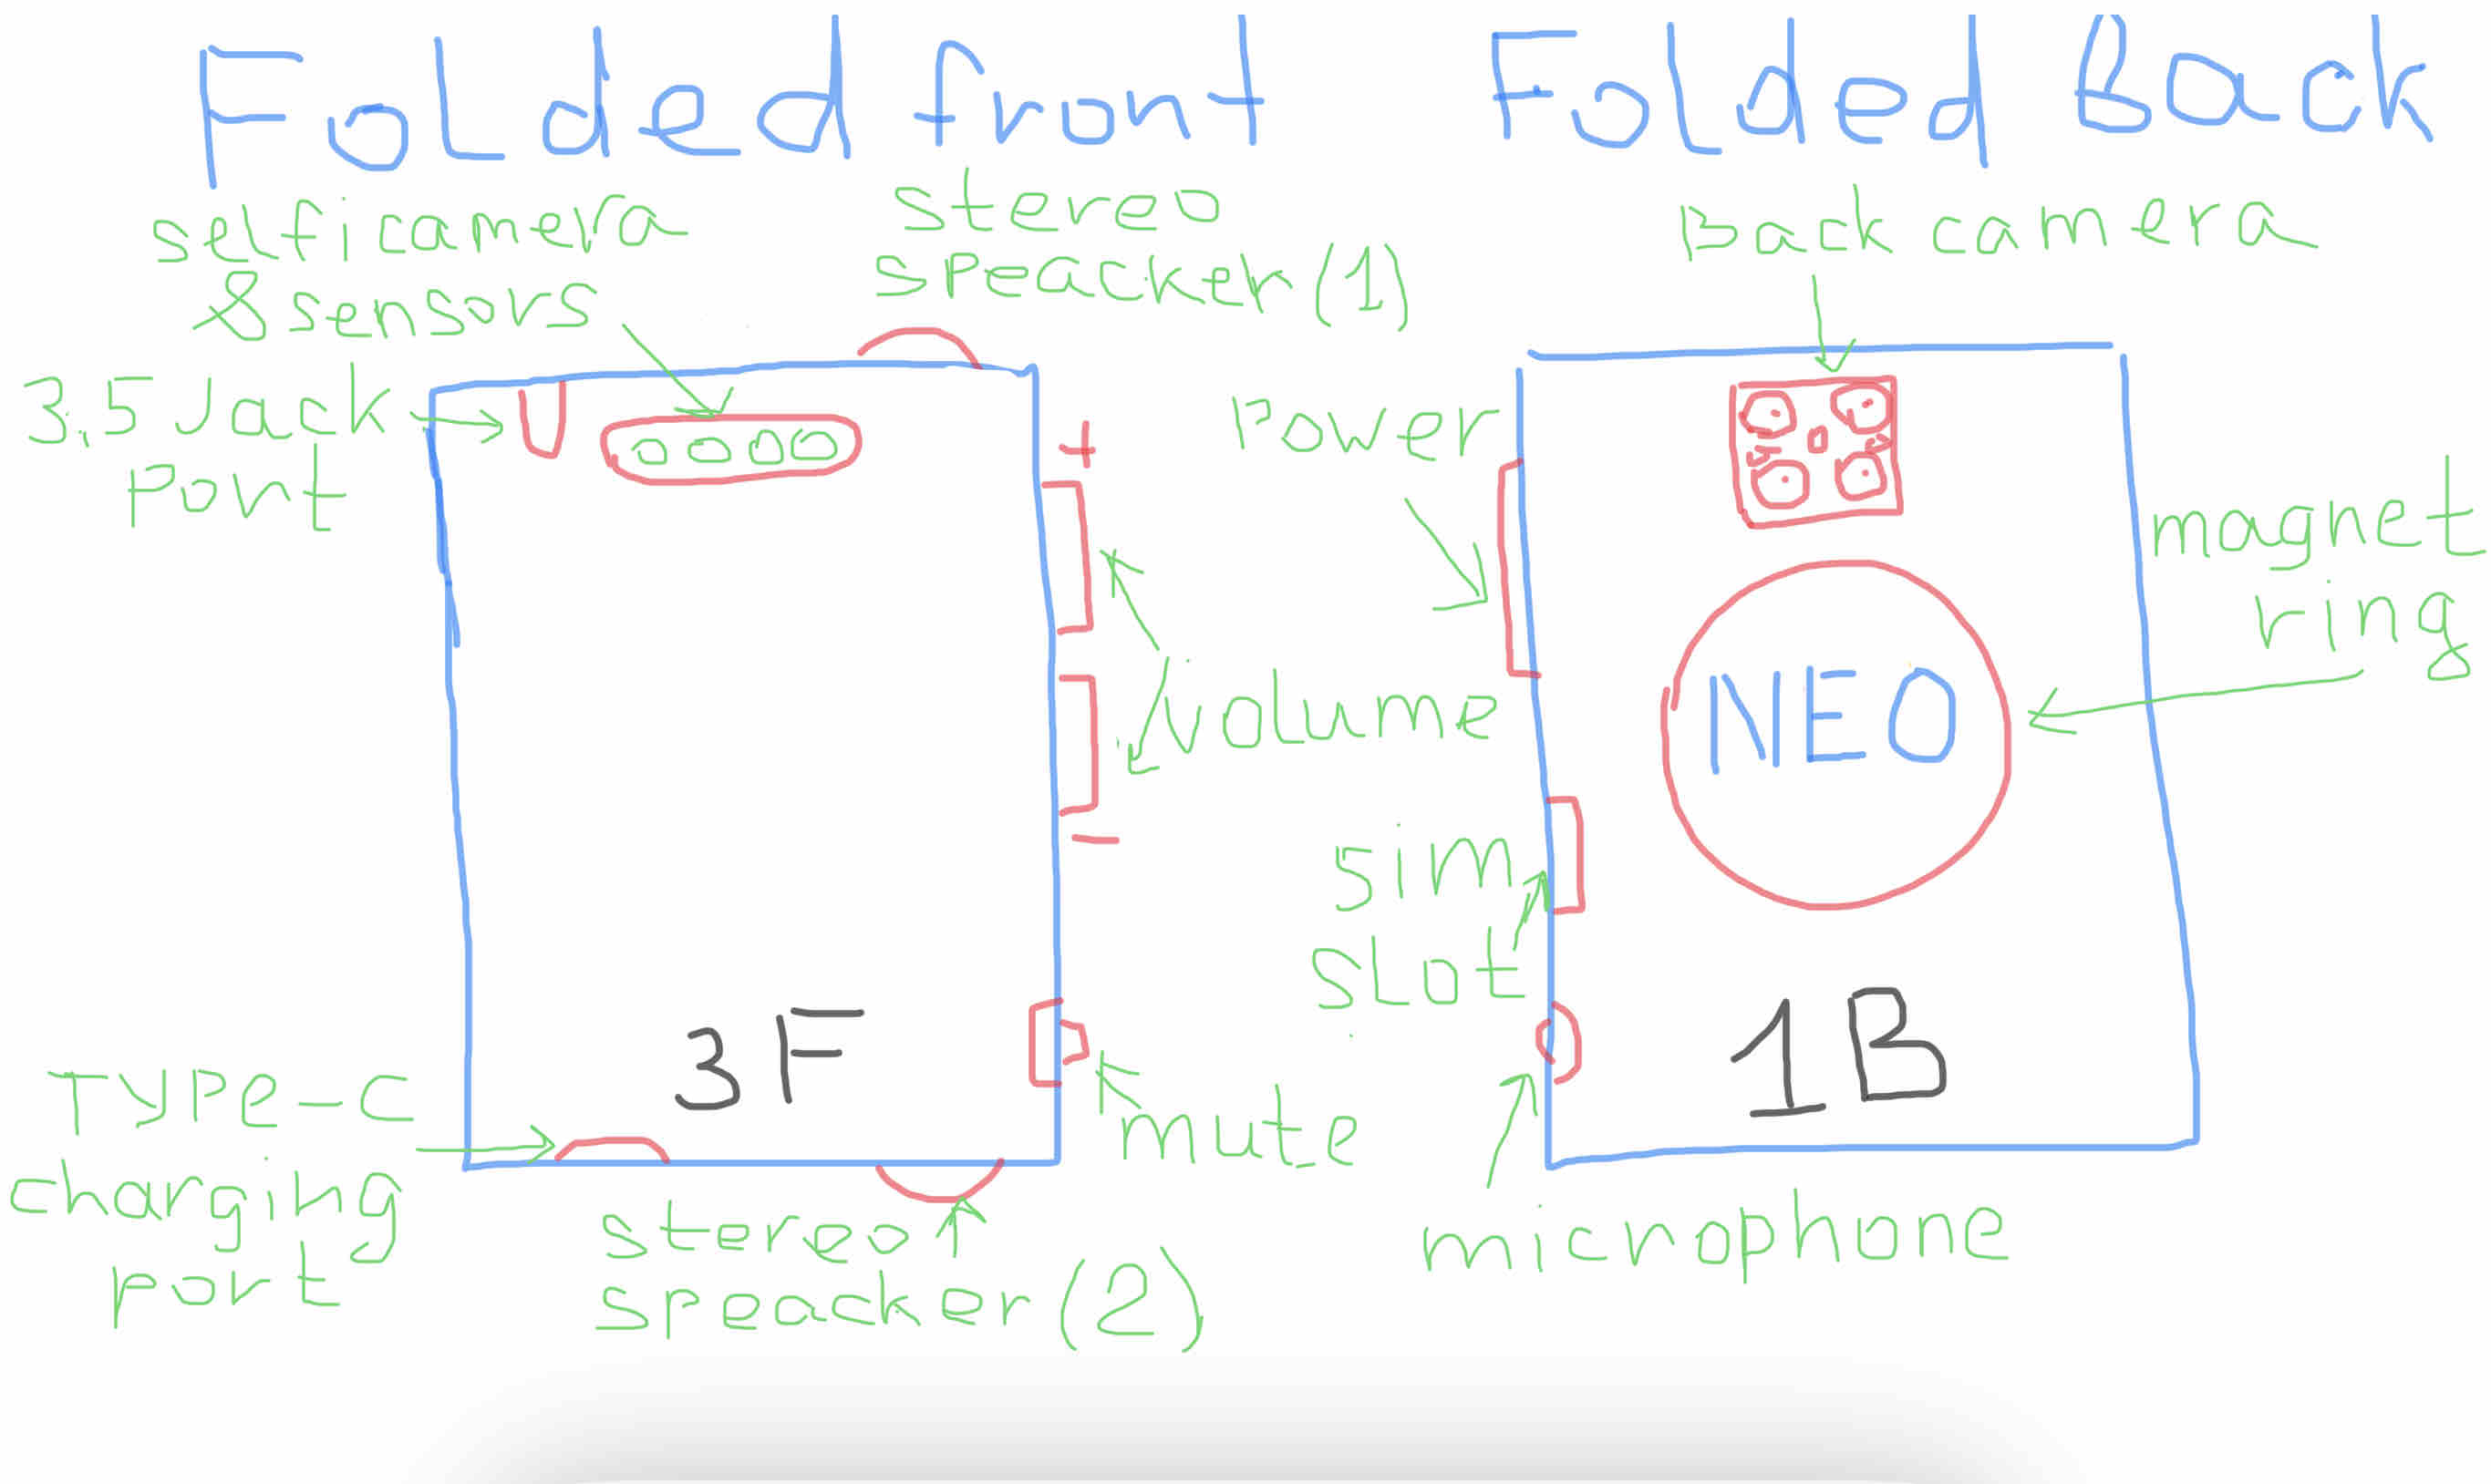 Folded front
Folded Back
selfi camera
& sensors
stereo
speacker (1)
3.5 Jack
Port
+
volume
-
3F
mute
TYPe-c
charging
port
stereo
speacker (2)
Back camera
Power
magnet
ring
NEO
sim
slot
1B
microphone